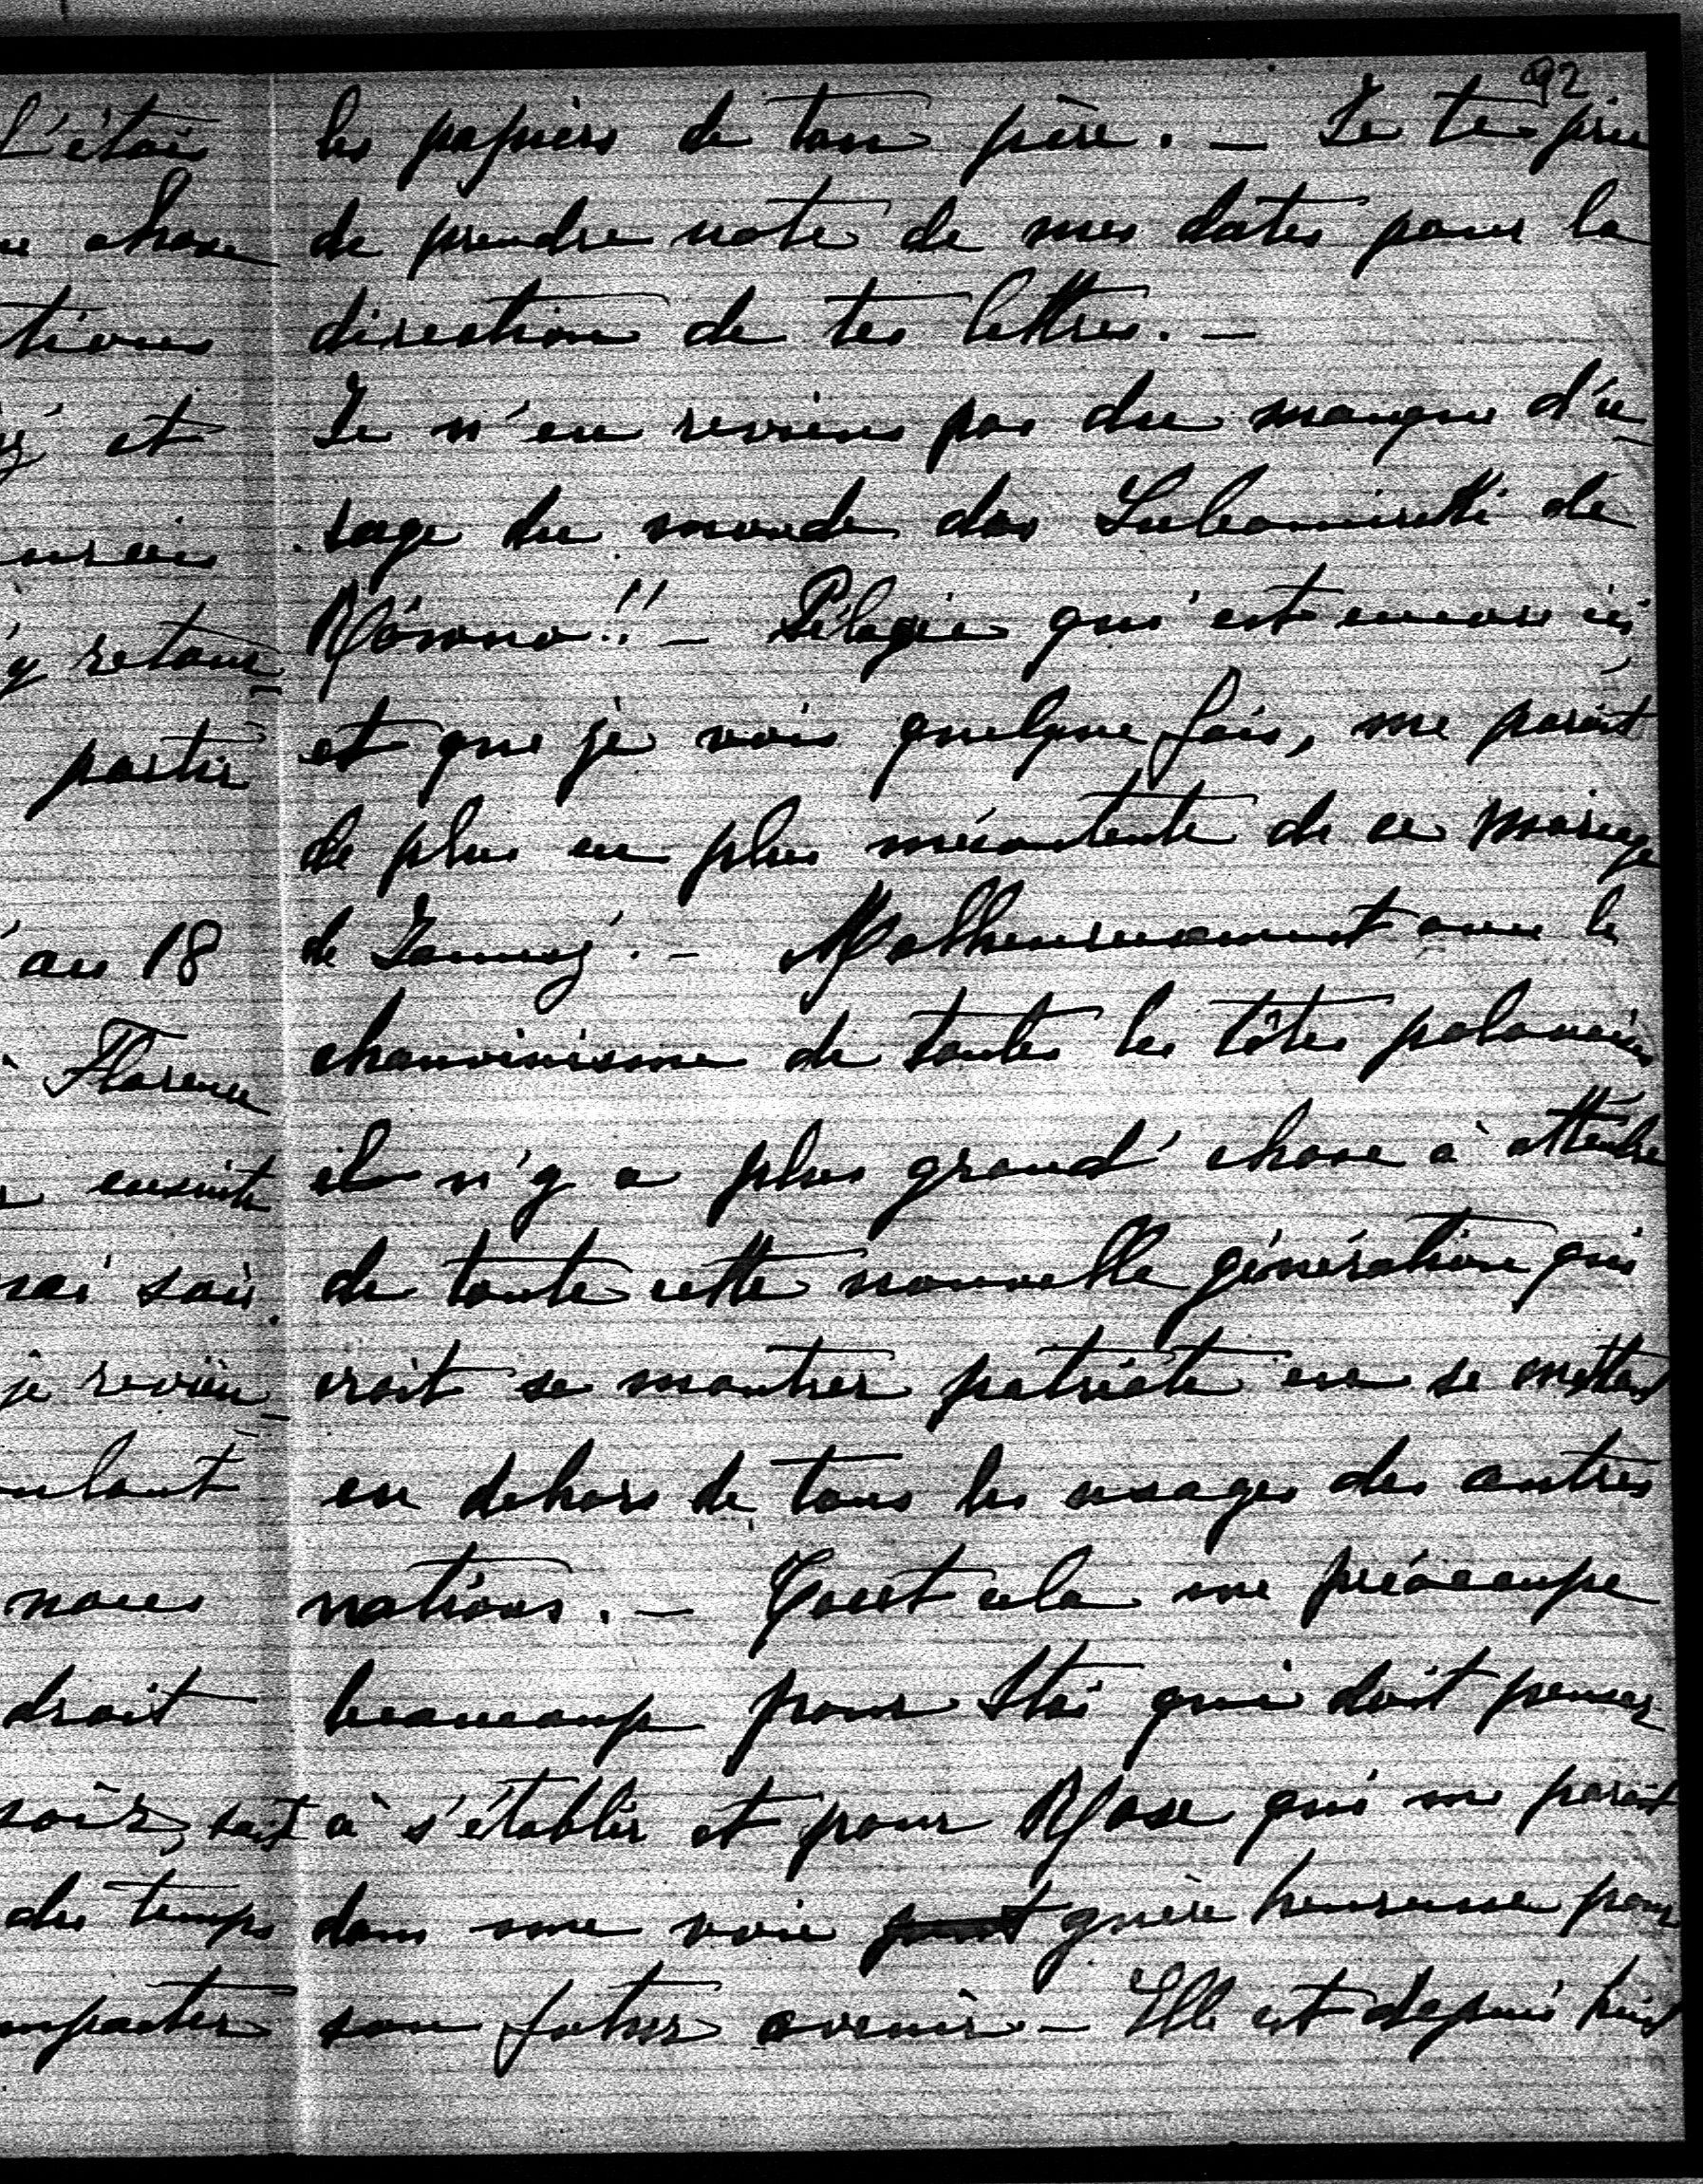 92
les papiers de ton père. — Je te prie
de prendre note de mes dates pour la
direction de tes lettres. —
Je n'en reviens pas du manque d'u-
sage du monde des Lubomirski de
Równo!! — Pélagie qui est encore ici
et que je vois quelque fois, me parait
de plus en plus mécontente de ce mariage
de — Malheureusement avec le
chauvinisme de toutes les têtes polonaises
il n'y a plus grand' chose à attendre
de toute cette nouvelle génération qui
croit se montrer patriote en se mettant
en dehors de tous les usages des autres
nations. — Tout cela me préoccupe
beaucoup pour Stas qui doit penser
à s'établir et pour Rose qui me parait
dans une voie guère heureuse pour
son futur avenir — Elle est depuis huit
l'étais
chose
tions
et
y retour-
partir
au 18
Florence
ensuite
rai soir
je revien-
nous
droit
soir, soit
du temps